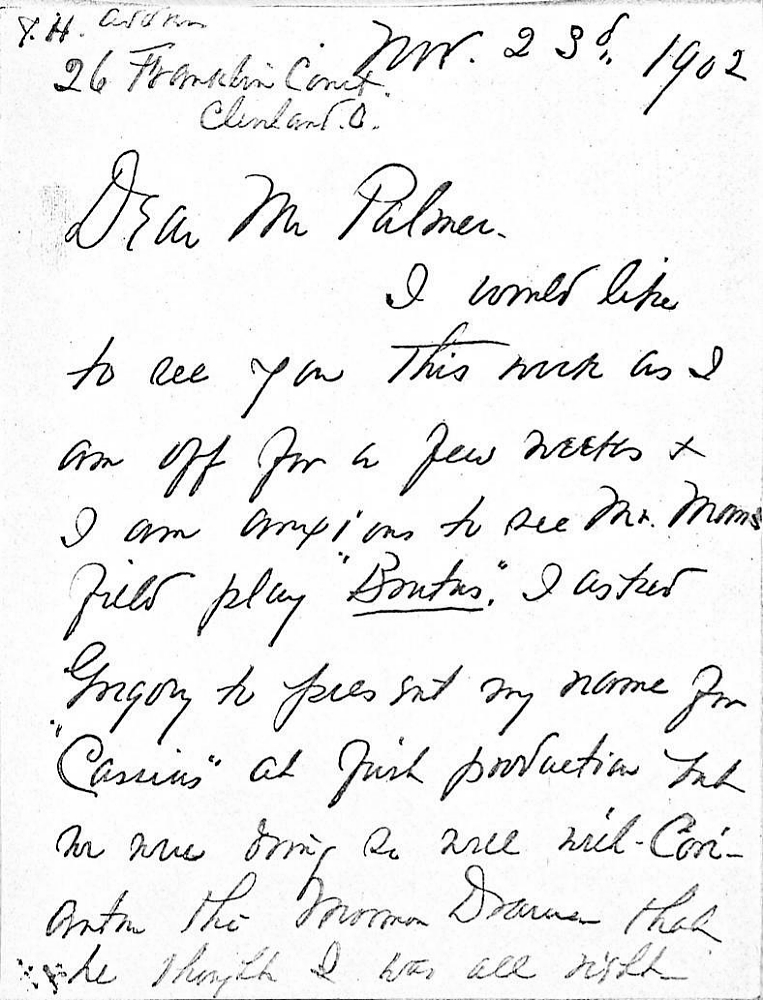 26 Franklin Court.
Cleveland. O.
Nov. 23d, 1902
Dear Mr Palmer.
I would like
to see you this week as I
am off for a few weeks +
I am anxious to see Mr. Mans
field play "Brutus". I asked
Gregory to present my name for
"Cassius" at first production but
we were doing so well with Cori-
anton the Mormon Drama that
he thought I was all right